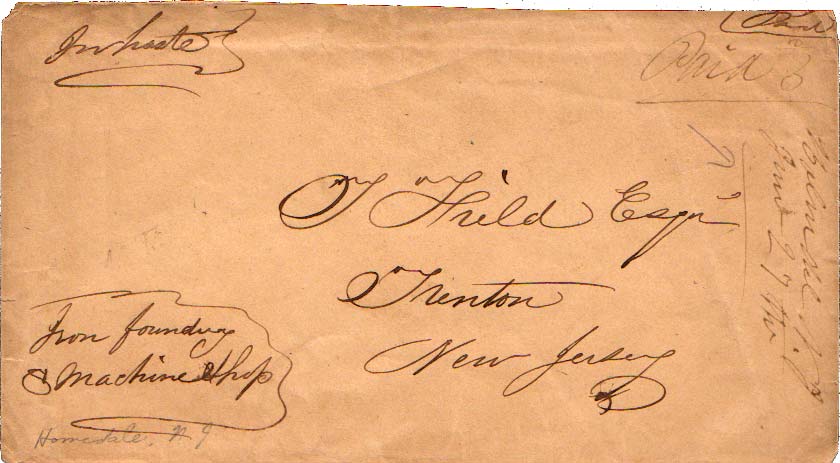 In haste
Paid
Paid 3
T Field Esqr
Trenton
New Jersey
Iron foundry
& Machine Shop
June 27th
N. J.